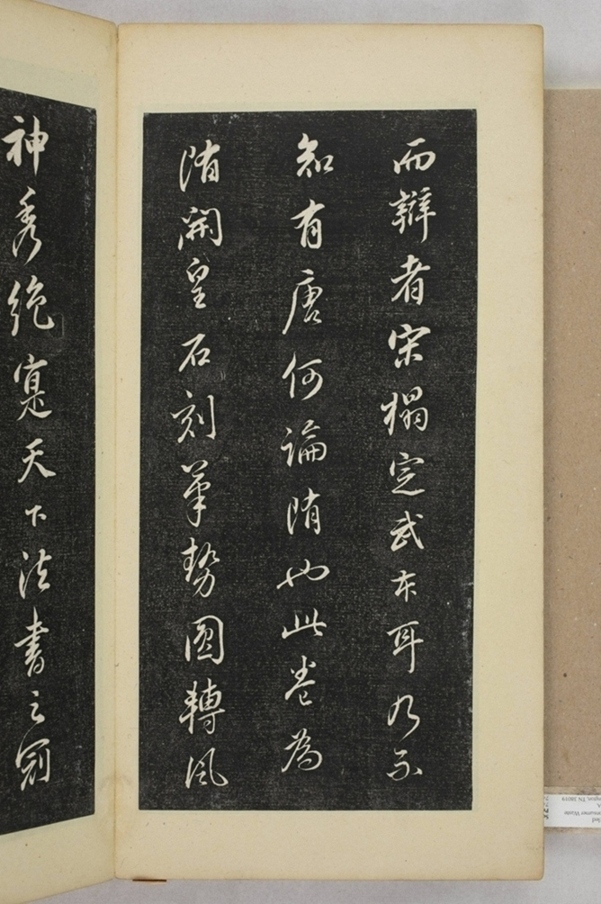 而辯者宋搨定武本耳乃不
知有唐何論隋也此卷為
隋開皇石刻筆勢圓轉風
神秀絶寔天下法書之冠